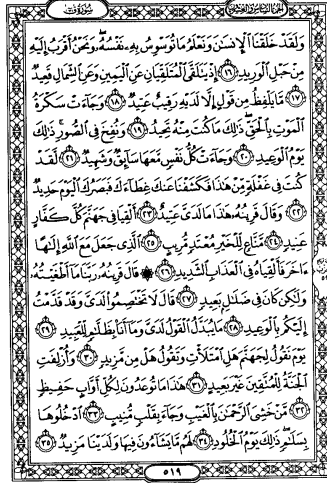 سورة ق
الجزء السادس والعشرون
وَلَقَدْ خَلَقْنَا ٱلْإِنسَٰنَ وَنَعْلَمُ مَا تُوَسْوِسُ بِهِۦ نَفْسُهُۥ ۖ وَنَحْنُ أَقْرَبُ إِلَيْهِ
مِنْ حَبْلِ ٱلْوَرِيدِ ١٦ إِذْ يَتَلَقَّى ٱلْمُتَلَقِّيَانِ عَنِ ٱلْيَمِينِ وَعَنِ ٱلشِّمَالِ قَعِيدٌ
١٧ مَّا يَلْفِظُ مِن قَوْلٍ إِلَّا لَدَيْهِ رَقِيبٌ عَتِيدٌ ١٨ وَجَآءَتْ سَكْرَةُ
ٱلْمَوْتِ بِٱلْحَقِّ ۖ ذَٰلِكَ مَا كُنتَ مِنْهُ تَحِيدُ ١٩ وَنُفِخَ فِى ٱلصُّورِ ۚ ذَٰلِكَ
يَوْمُ ٱلْوَعِيدِ ٢٠ وَجَآءَتْ كُلُّ نَفْسٍ مَّعَهَا سَآئِقٌ وَشَهِيدٌ ٢١ لَّقَدْ
كُنتَ فِى غَفْلَةٍ مِّنْ هَٰذَا فَكَشَفْنَا عَنكَ غِطَآءَكَ فَبَصَرُكَ ٱلْيَوْمَ حَدِيدٌ
٢٢ وَقَالَ قَرِينُهُۥ هَٰذَا مَا لَدَىَّ عَتِيدٌ ٢٣ أَلْقِيَا فِى جَهَنَّمَ كُلَّ كَفَّارٍ
عَنِيدٍ ٢٤ مَّنَّاعٍ لِّلْخَيْرِ مُعْتَدٍ مُّرِيبٍ ٢٥ ٱلَّذِى جَعَلَ مَعَ ٱللَّهِ إِلَٰهًا
ءَاخَرَ فَأَلْقِيَاهُ فِى ٱلْعَذَابِ ٱلشَّدِيدِ ٢٦ ۞ قَالَ قَرِينُهُۥ رَبَّنَا مَآ أَطْغَيْتُهُۥ
وَلَٰكِن كَانَ فِى ضَلَٰلٍۭ بَعِيدٍ ٢٧ قَالَ لَا تَخْتَصِمُوا۟ لَدَىَّ وَقَدْ قَدَّمْتُ
إِلَيْكُم بِٱلْوَعِيدِ ٢٨ مَا يُبَدَّلُ ٱلْقَوْلُ لَدَىَّ وَمَآ أَنَا۠ بِظَلَّٰمٍ لِّلْعَبِيدِ ٢٩
يَوْمَ نَقُولُ لِجَهَنَّمَ هَلِ ٱمْتَلَأْتِ وَتَقُولُ هَلْ مِن مَّزِيدٍ ٣٠ وَأُزْلِفَتِ
ٱلْجَنَّةُ لِلْمُتَّقِينَ غَيْرَ بَعِيدٍ ٣١ هَٰذَا مَا تُوعَدُونَ لِكُلِّ أَوَّابٍ حَفِيظٍ
٣٢ مَّنْ خَشِىَ ٱلرَّحْمَٰنَ بِٱلْغَيْبِ وَجَآءَ بِقَلْبٍ مُّنِيبٍ ٣٣ ٱدْخُلُوهَا
بِسَلَٰمٍ ۖ ذَٰلِكَ يَوْمُ ٱلْخُلُودِ ٣٤ لَهُم مَّا يَشَآءُونَ فِيهَا وَلَدَيْنَا مَزِيدٌ ٣٥
٥١٩